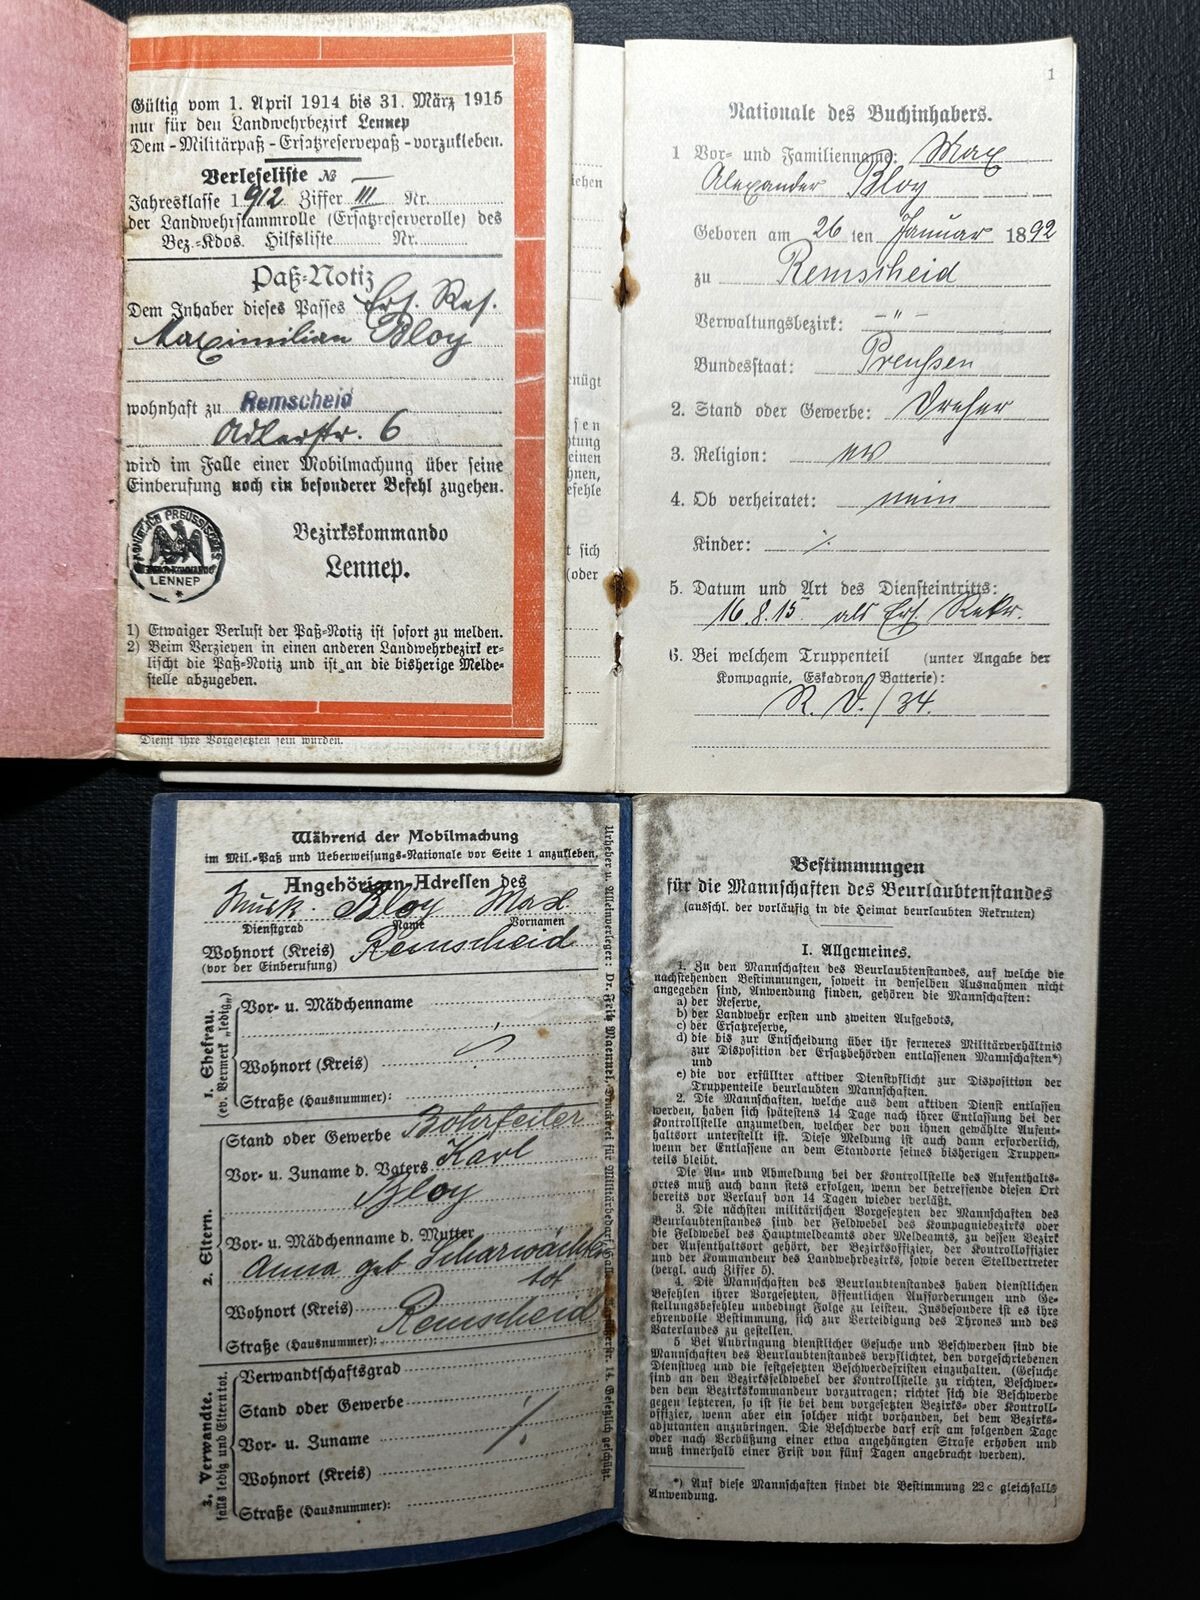 Gültig vom 1. April 1914 bis 31. März 1915
nur für den Landwehrbezirk Lennep
Dem-Militärpaß-Ersatzreservepaß-vorzukleben.
Verleseliste №
Jahresklasse 1912 Ziffer III Nr.
der Landwehrstammrolle (Ersatzreserverolle) des
Bez.-Kdos. Hilfsliste Nr.
Paß-Notiz
Dem Inhaber dieses Passes Ers. Res.
Maximilian Bloy
wohnhaft zu Remscheid
Adlerstr. 6
wird im Falle einer Mobilmachung über seine
Einberufung noch ein besonderer Befehl zugehen.
KÖNIGLICH PREUSSISCHES
LENNEP
Bezirkskommando
Lennep.
1) Etwaiger Verlust der Paß-Notiz ist sofort zu melden.
2) Beim Verziehen in einen anderen Landwehrbezirk er-
lischt die Paß-Notiz und ist an die bisherige Melde-
stelle abzugeben.
Dienst ihre Vorgesetzten sein würden.
1
Nationale des Buchinhabers.
1 Vor- und Familienname: Max
Alexander Bloy
Geboren am 26 ten Januar 1892
zu Remscheid
Verwaltungsbezirk: - " -
Bundesstaat: Preußen
2. Stand oder Gewerbe: Dreher
3. Religion: ev
4. Ob verheiratet: nein
Kinder: ·/.
5. Datum und Art des Diensteintritts:
16.8.15 als Ers. Rekr.
6. Bei welchem Truppenteil (unter Angabe der
Kompagnie, Eskadron Batterie):
R. D./34.
Während der Mobilmachung
im Mil.-Paß und Ueberweisungs-Nationale vor Seite 1 anzukleben.
Angehörigen-Adressen des
Musk. Bloy Max
Dienstgrad Name Vornamen
Wohnort (Kreis) Remscheid
(vor der Einberufung)
1. Ehefrau.
(ev. Vermerk „ledig")
Vor- u. Mädchenname
Wohnort (Kreis)
Straße (Hausnummer):
2. Eltern.
Stand oder Gewerbe
Vor- u. Zuname d. Vaters Karl
Bloy
Vor- u. Mädchenname d. Mutter
Anna geb
tot
Wohnort (Kreis) Remscheid
Straße (Hausnummer):
3. Verwandte.
falls ledig und Eltern tot.
Verwandtschaftsgrad
Stand oder Gewerbe
Vor- u. Zuname ·/.
Wohnort (Kreis)
Straße (Hausnummer):
Urheber u. Alleinverleger: Dr. Fritz Maennel, Druckerei für Militärbedarf, 14. Gesetzlich geschützt.
Bestimmungen
für die Mannschaften des Beurlaubtenstandes
(ausschl. der vorläufig in die Heimat beurlaubten Rekruten)
I. Allgemeines.
1. Zu den Mannschaften des Beurlaubtenstandes, auf welche die
nachstehenden Bestimmungen, soweit in denselben Ausnahmen nicht
angegeben sind, Anwendung finden, gehören die Mannschaften:
a) der Reserve,
b) der Landwehr ersten und zweiten Aufgebots,
c) der Ersatzreserve,
d) die bis zur Entscheidung über ihr ferneres Militärverhältnis
zur Disposition der Ersatzbehörden entlassenen Mannschaften*)
und
e) die vor erfüllter aktiver Dienstpflicht zur Disposition der
Truppenteile beurlaubten Mannschaften.
2. Die Mannschaften, welche aus dem aktiven Dienst entlassen
werden, haben sich spätestens 14 Tage nach ihrer Entlassung bei der
Kontrollstelle anzumelden, welcher der von ihnen gewählte Aufent-
haltsort unterstellt ist. Diese Meldung ist auch dann erforderlich,
wenn der Entlassene an dem Standorte seines bisherigen Truppen-
teils bleibt.
Die An- und Abmeldung bei der Kontrollstelle des Aufenthalts-
ortes muß auch dann stets erfolgen, wenn der betreffende diesen Ort
bereits vor Verlauf von 14 Tagen wieder verläßt.
3. Die nächsten militärischen Vorgesetzten der Mannschaften des
Beurlaubtenstandes sind der Feldwebel des Kompagniebezirks oder
die Feldwebel des Hauptmeldeamts oder Meldeamts, zu dessen Bezirk
der Aufenthaltsort gehört, der Bezirksoffizier, der Kontrolloffizier
und der Kommandeur des Landwehrbezirks, sowie deren Stellvertreter
(vergl. auch Ziffer 5).
4. Die Mannschaften des Beurlaubtenstandes haben dienstlichen
Befehlen ihrer Vorgesetzten, öffentlichen Aufforderungen und Ge-
stellungsbefehlen unbedingt Folge zu leisten. Insbesondere ist es ihre
ehrenvolle Bestimmung, sich zur Verteidigung des Thrones und des
Vaterlandes zu gestellen.
5 Bei Anbringung dienstlicher Gesuche und Beschwerden sind die
Mannschaften des Beurlaubtenstandes verpflichtet, den vorgeschriebenen
Dienstweg und die festgesetzten Beschwerdefristen einzuhalten. (Gesuche
sind an den Bezirksfeldwebel der Kontrollstelle zu richten, Beschwer-
den dem Bezirkskommandeur vorzutragen; richtet sich die Beschwerde
gegen letzteren, so ist sie bei dem vorgesetzten Bezirks- oder Kontroll-
offizier, wenn aber ein solcher nicht vorhanden, bei dem Bezirks-
adjutanten anzubringen. Die Beschwerde darf erst am folgenden Tage
oder nach Verbüßung einer etwa angehängten Strafe erhoben und
muß innerhalb einer Frist von fünf Tagen angebracht werden).
*) Auf diese Mannschaften findet die Bestimmung 22 c gleichfalls
Anwendung.